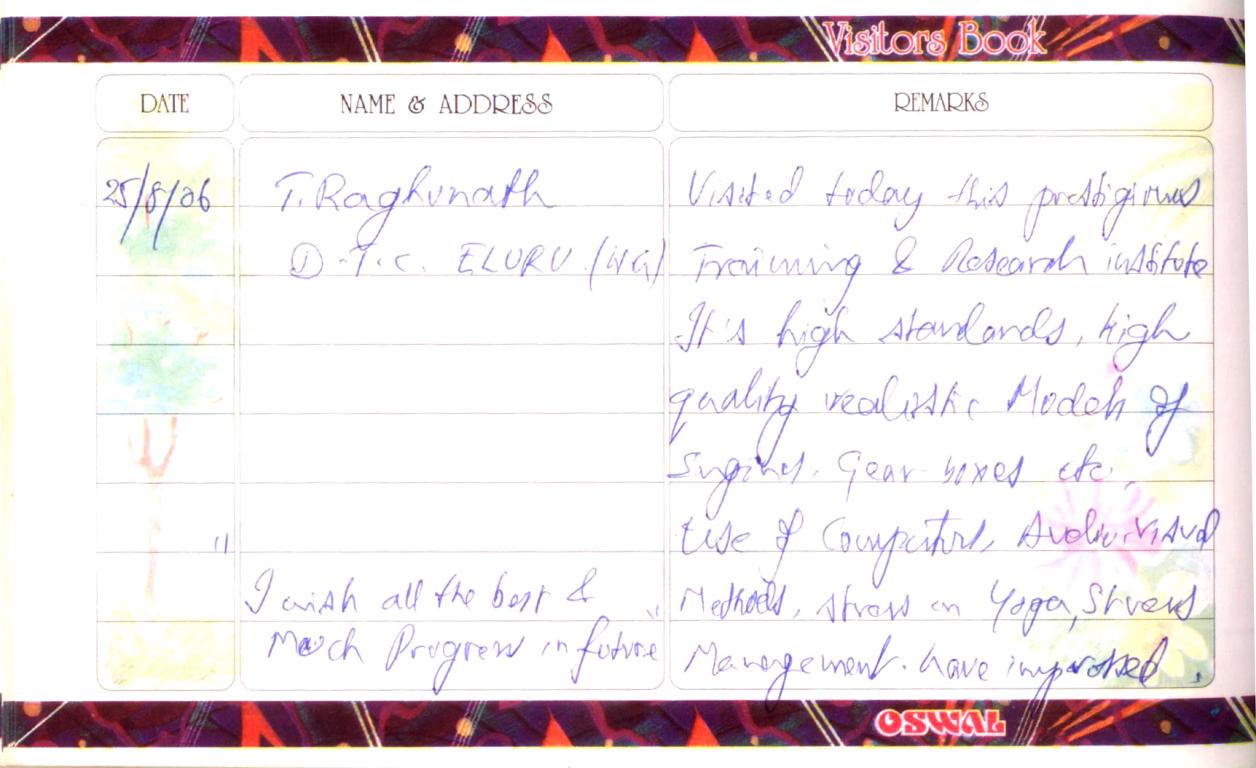 Visitors Book
DATE
NAME & ADDRESS
REMARKS
25/8/06
T. Raghunath
D.T.C. ELURU (WG)
I wish all the best &
Much Progress in future
Visited today this prestigious
Training & Research institute
It's high standards, high
quality realistic Models of
Engines, Gear boxes etc,
Use of Computers, Audio-Visual
Methods, stress on Yoga, Stress
Management have impressed.
OSWAL